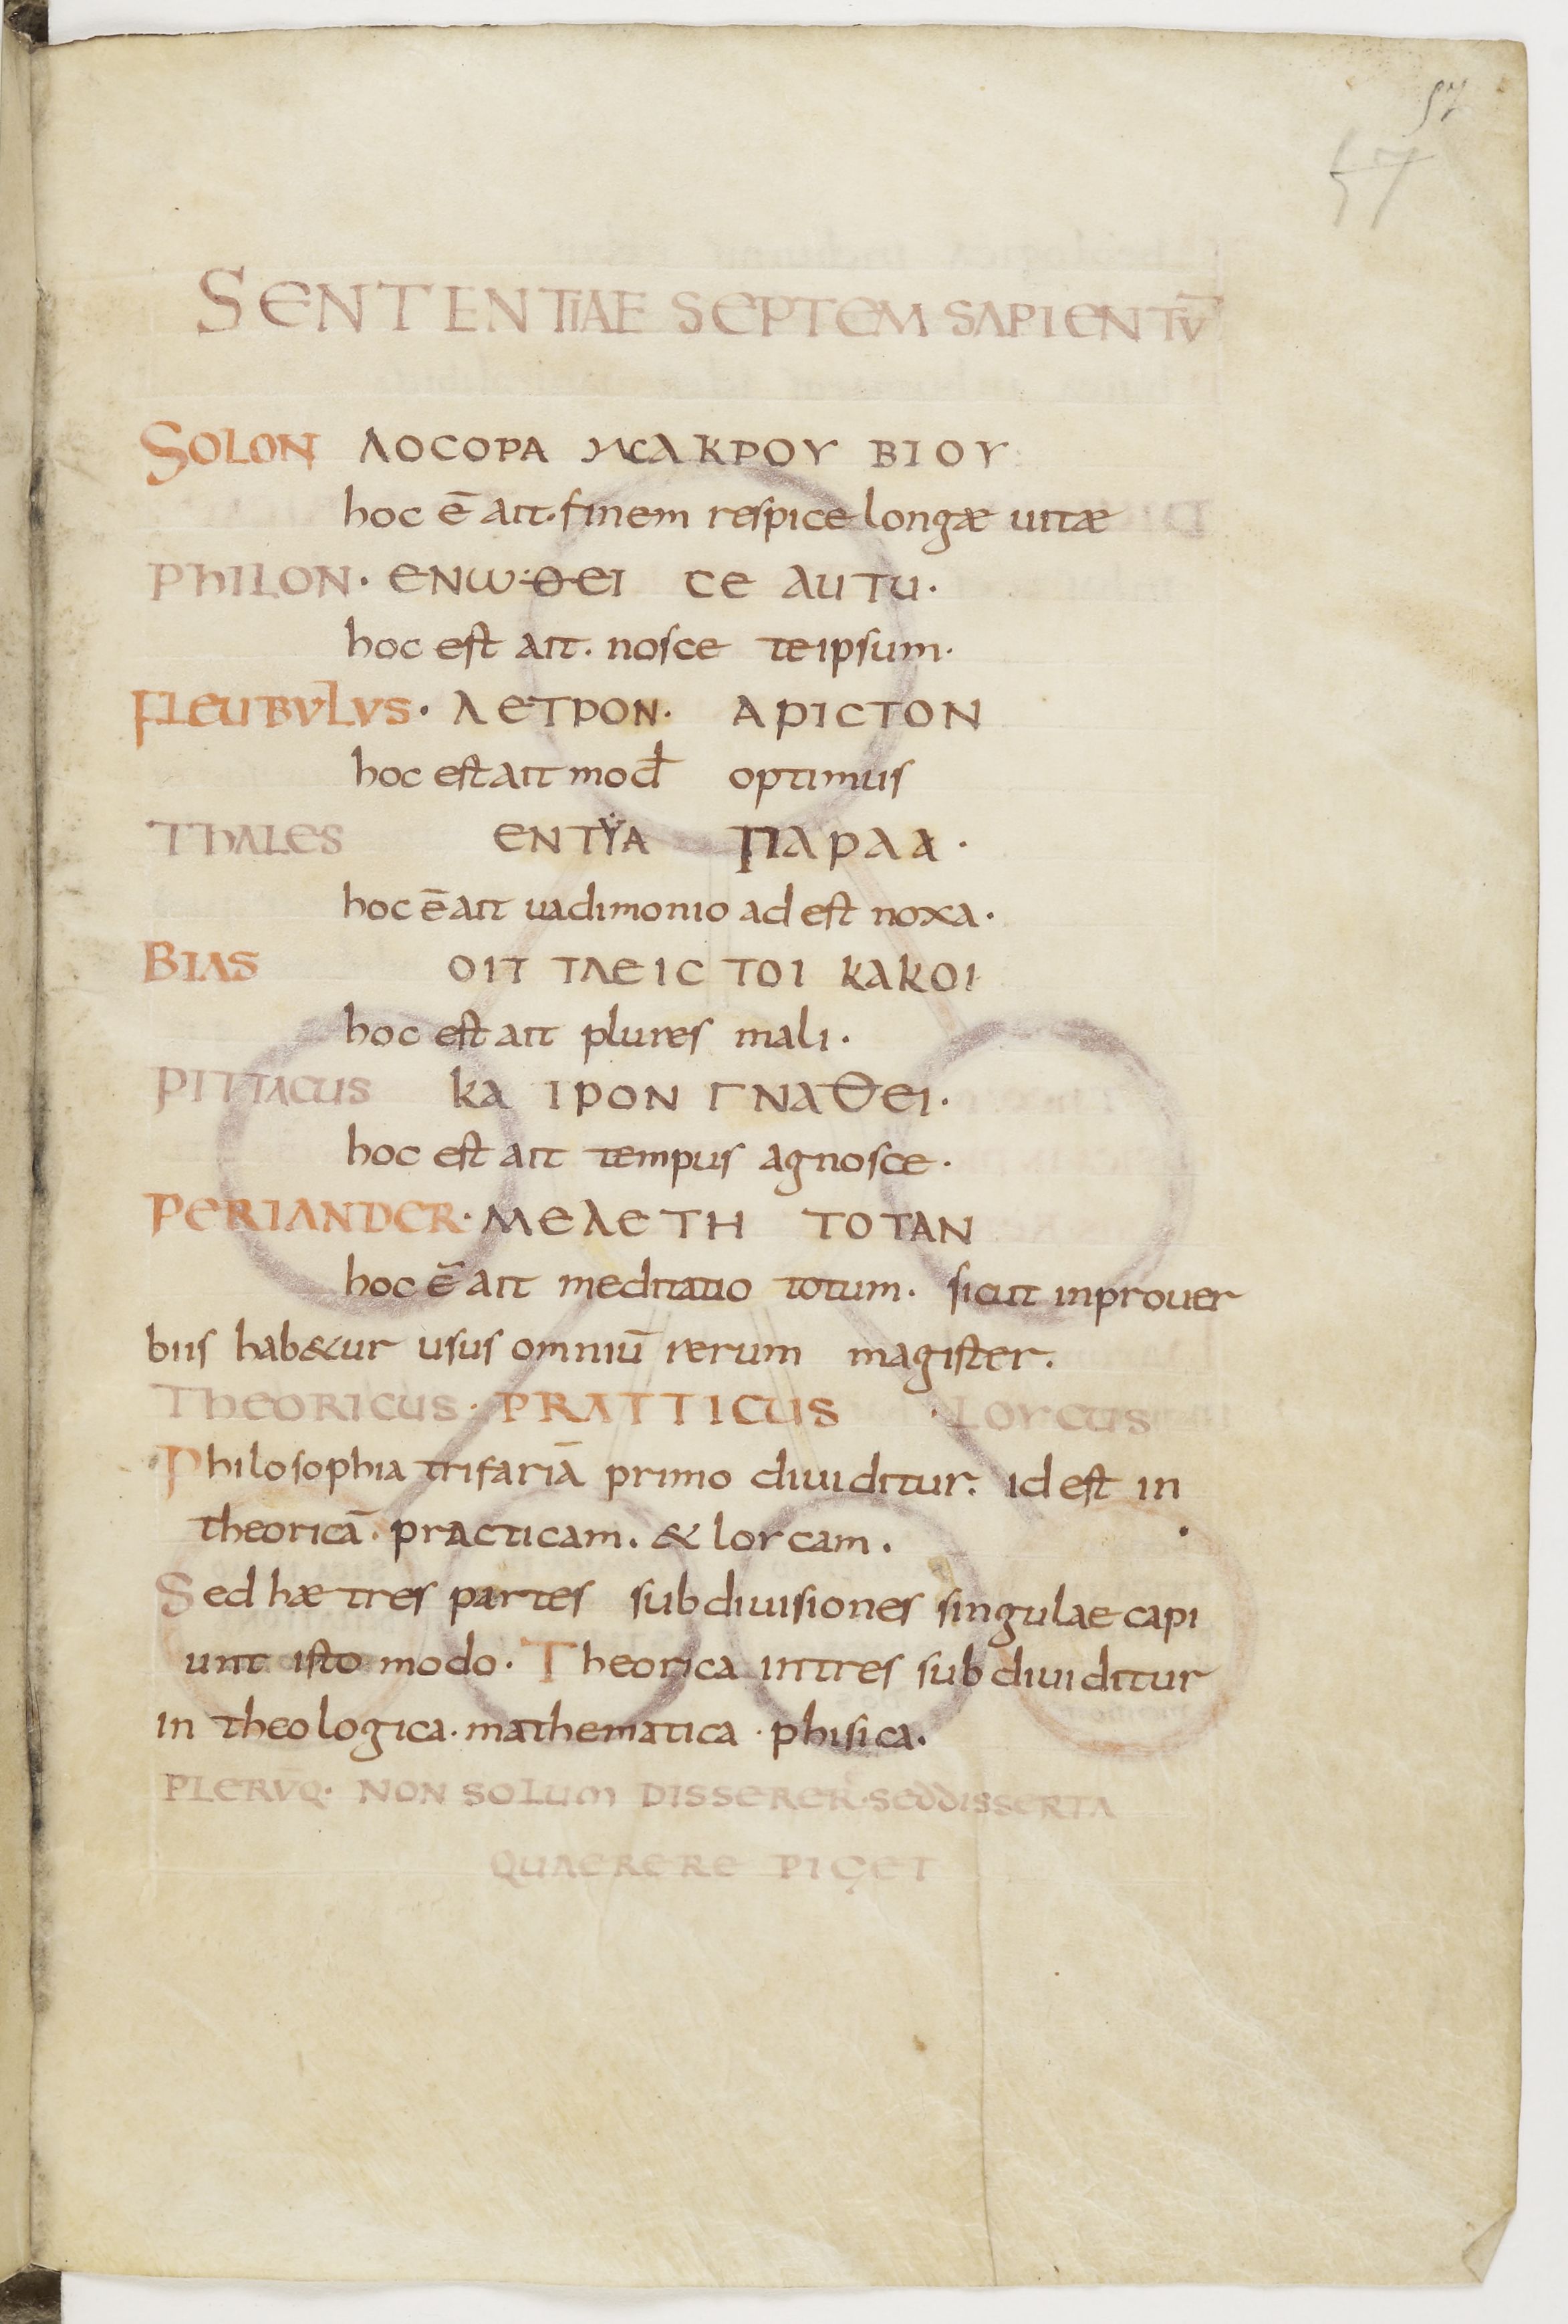 57
57
SENTENTIAE SEPTEM SAPIENTV̄
SOLON ΛΟСΟΡΑ ΜΑΚΡΟΥ ΒΙΟΥ
hoc ē ait · finem respice longæ uitæ
PHILON · ЄΝѠ·ΘЄΙ СЄ ΑUΤU ·
hoc est ait . nosce teipsum ·
FLEUBVLVS · ΛЄΤΡΟΝ · ΑΡΙСΤΟΝ
hoc est ait mod̄ optimus
THALES ЄΝΤΫΑ ΠΑΡΑΑ ·
hoc ē ait uadimonio ad est noxa ·
BIAS ΟΙΤ ΤΛЄΙС ΤΟΙ ΚΑΚΟΙ
hoc est ait plures mali ·
PITTACUS ΚΑ ΙΡΟΝ ΓΝΑΘЄΙ ·
hoc est ait tempus agnosce ·
PERIANDER · ΜЄΛЄΤΗ ΤΟΤΑΝ
hoc ē ait meditatio totum · sicut inprouer
biis hab&ur usus omniū rerum magister .
THEORICUS · PRATTICUS · LOYCUS
Philosophia trifariā primo diuiditur . id est in
theoricā . practicam . & loycam .
Sed hæ tres partes subdiuisiones singulae capi
unt isto modo · Theorica intres subdiuiditur
in theologica · mathematica · phisica .
PLERV̄Q · NON SOLUM DISSERER · SEDDISSERTA
QUAERERE PIGET